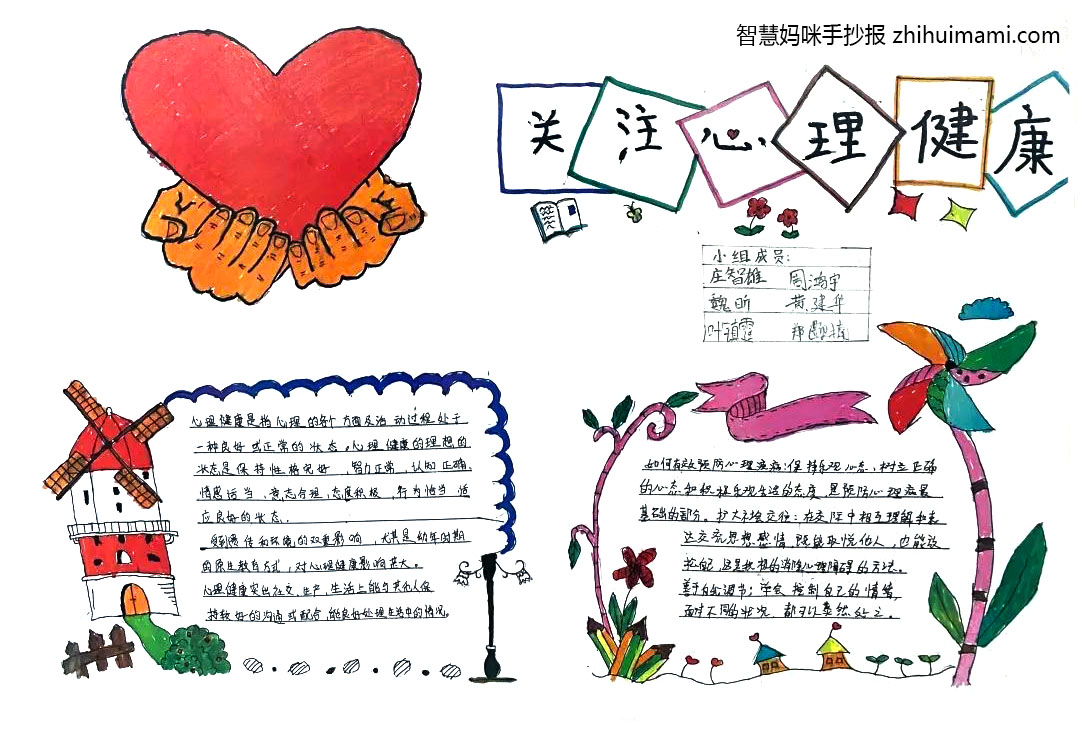 智慧妈咪手抄报 zhihuimami.com
关注心理健康
小组成员:
庄智雄 周鸿宇
魏昕 黄建华
叶镇霆 郑
心理健康是指心理的各个方面及活动过程处于
一种良好或正常的状态。心理健康的理想的
状态是保持性格完好,智力正常,认知正确,
情感适当,意志合理,态度积极,行为恰当 适
应良好的状态.
受到遗传和环境的双重影响,尤其是幼年时期
的原生教育方式,对心理健康影响甚大。
心理健康突出在社交,生产,生活上能与其他人保
持较好的沟通或配合,能良好处理生活中的情况。
如何有效预防心理疾病:保持乐观心态,树立正确
的心态和积极乐观生活的态度,是预防心理疾病最
基础的部分。扩大社会交往:在交际中相互理解和表
达交流思想感情,既能取悦他人,也能放
松自己,这是积极的消除心理障碍的方法。
善于自我调节:学会控制自己的情绪,
面对不同的状况,都可以泰然处之。